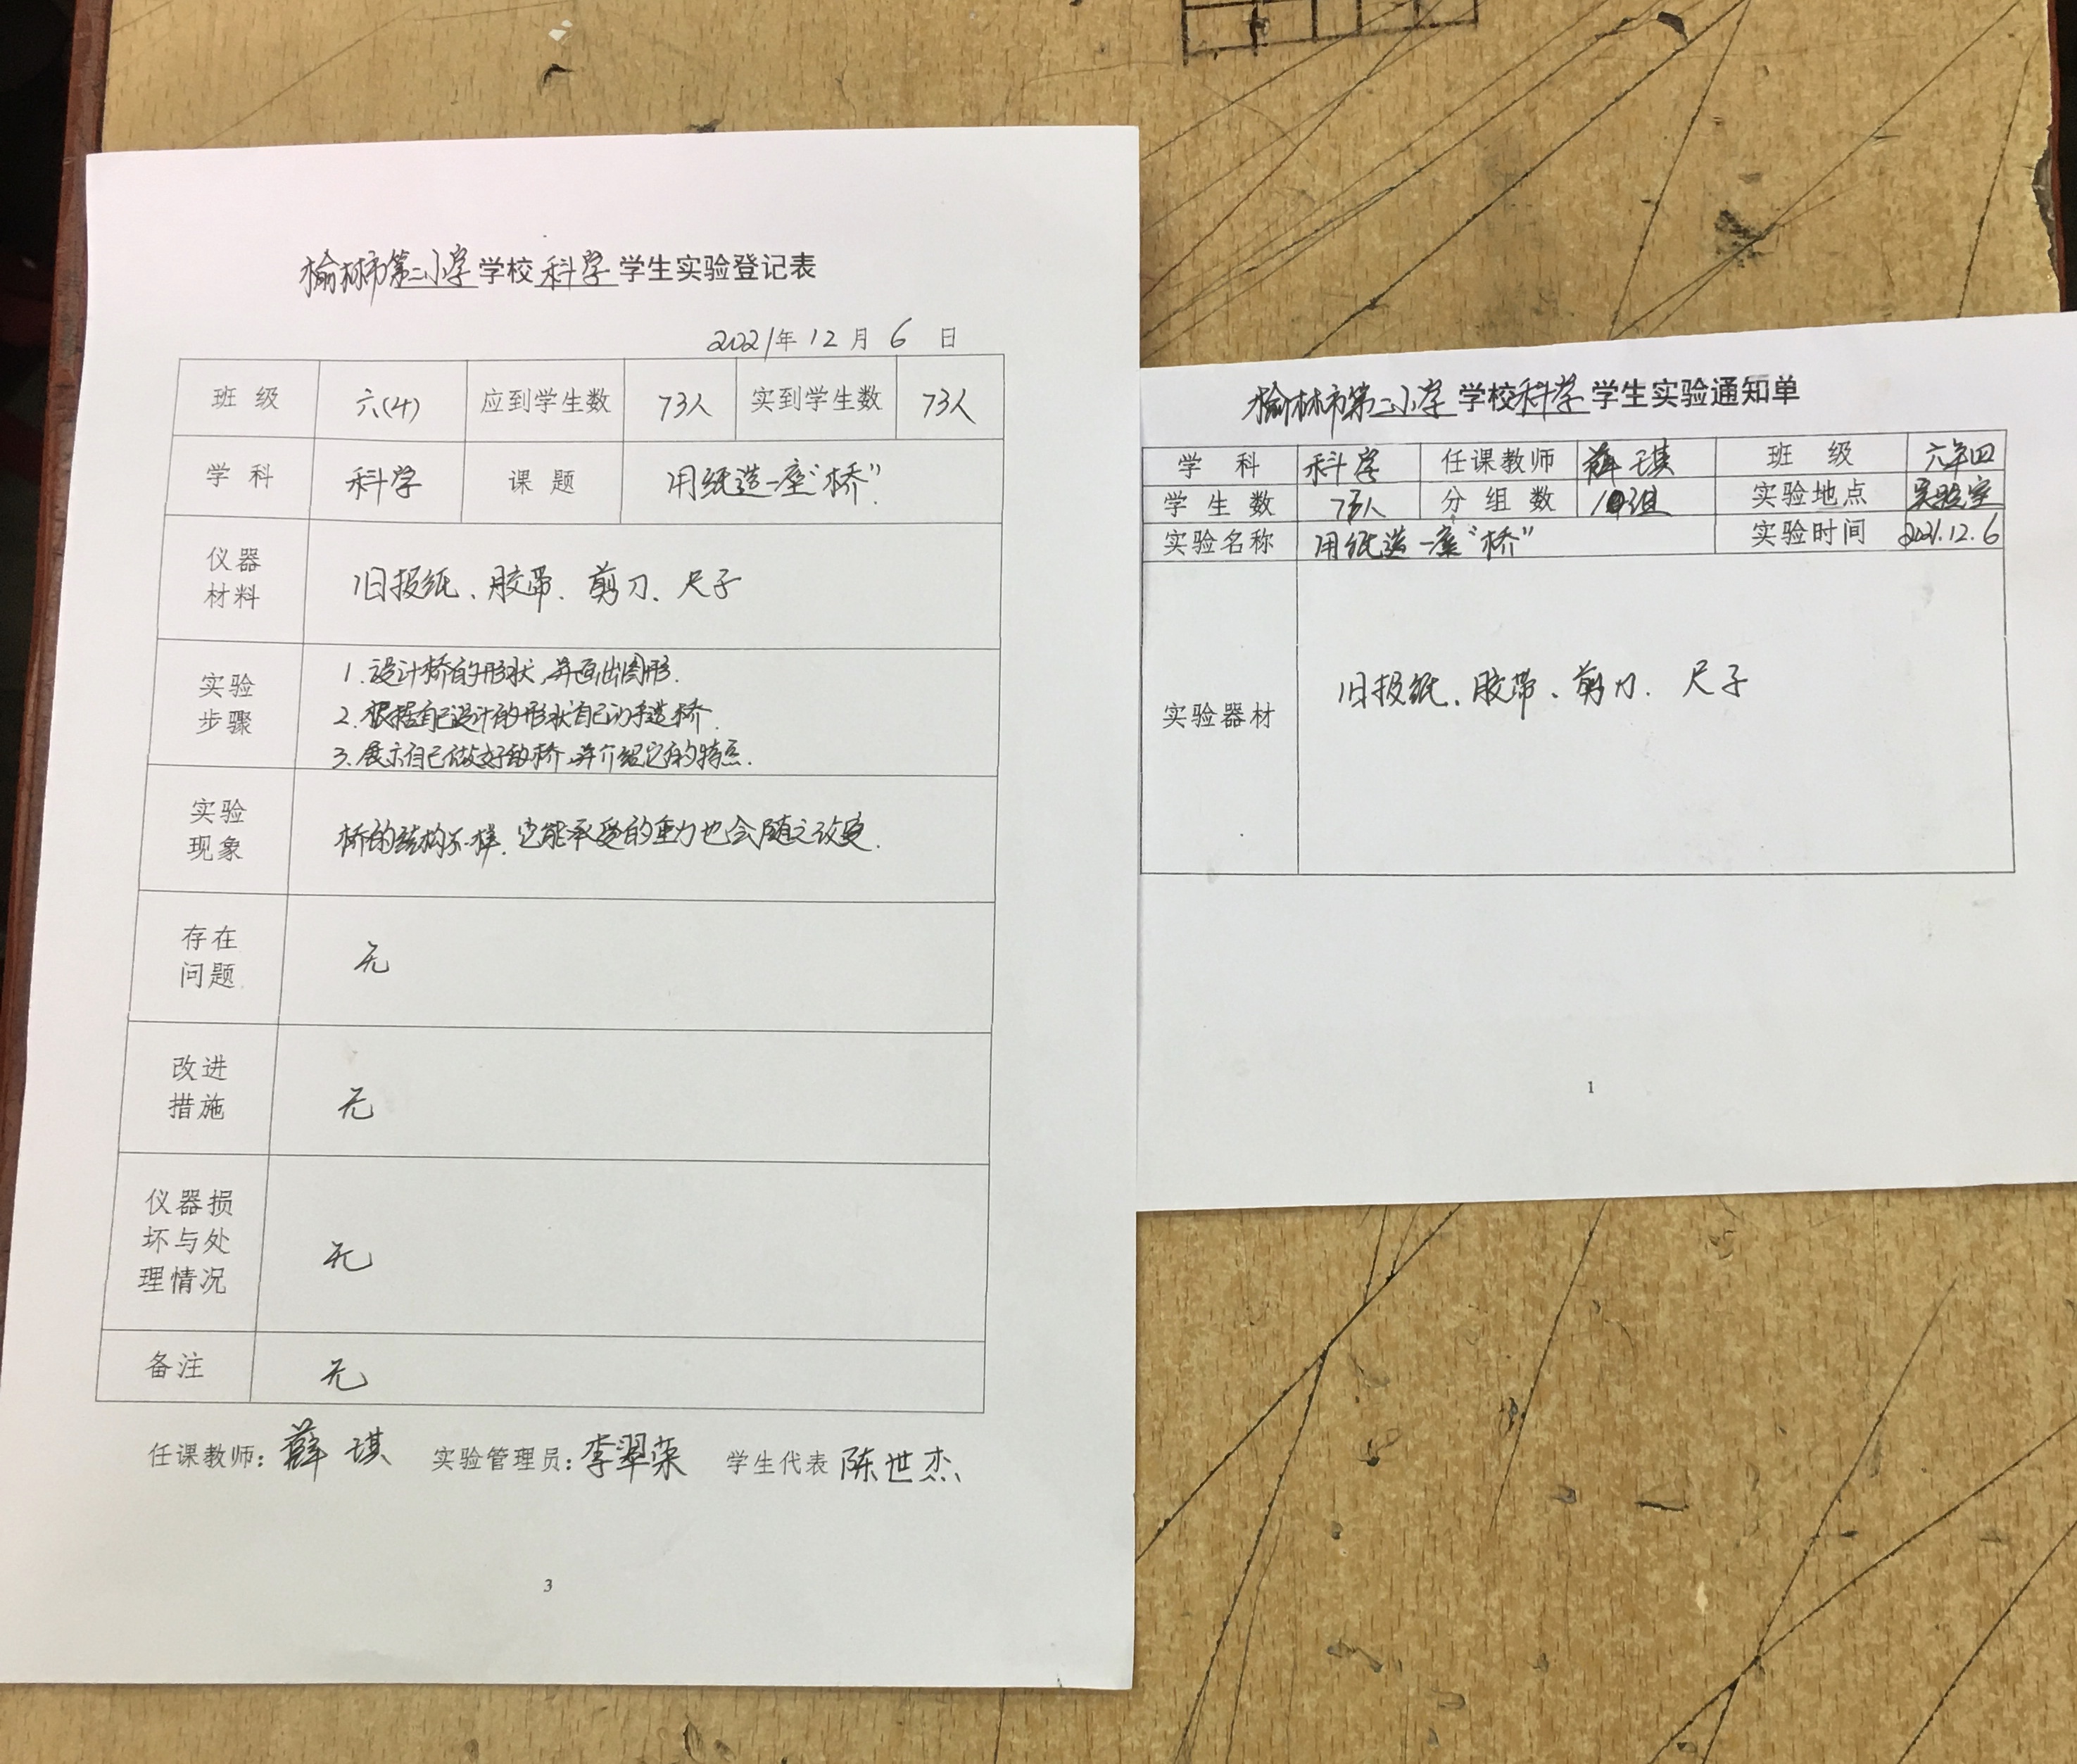 榆林市第二小学学校科学学生实验登记表
2021年12月6日
班级 六(4) 应到学生数 73人 实到学生数 73人
学科 科学 课题 用纸造一座“桥”.
仪器材料 旧报纸、胶带、剪刀、尺子
实验步骤 1.设计桥的形状,并画出图形.
2.根据自己设计的形状自己动手造桥.
3.展示自己做好的桥,并介绍它的特点.
实验现象 桥的结构不一样,它能承受的重力也会随之改变.
存在问题 无
改进措施 无
仪器损坏与处理情况 无
备注 无
任课教师:薛琪 实验管理员:李翠荣 学生代表 陈世杰
3
榆林市第二小学学校科学学生实验通知单
学科 科学 任课教师 薛琪 班级 六年四
学生数 73人 分组数 组 实验地点 实验室
实验名称 用纸造一座“桥” 实验时间 2021.12.6
实验器材 旧报纸、胶带、剪刀、尺子
1